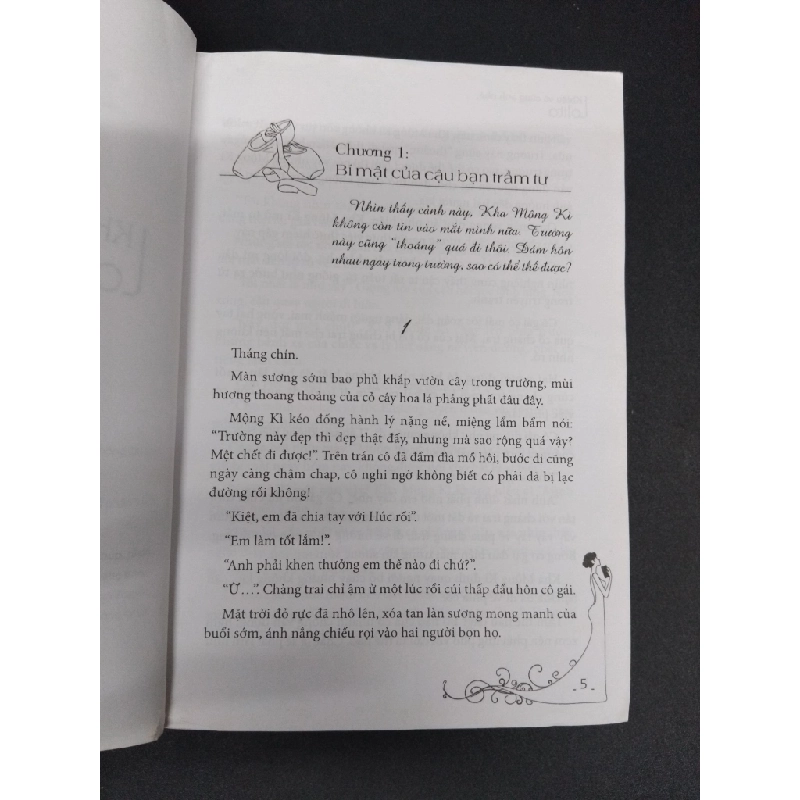 Chương 1:
Bí mật của cậu bạn trầm tư
Nhìn thấy cảnh này, Kha Mộng Kì
không còn tin vào mắt mình nữa. Trường
này cũng "thoáng" quá đi thôi. Dám hôn
nhau ngay trong trường, sao có thể thế được?
1
Tháng chín.
Màn sương sớm bao phủ khắp vườn cây trong trường, mùi
hương thoang thoảng của cỏ cây hoa lá phảng phất đâu đây.
Mộng Kì kéo đống hành lý nặng nề, miệng lẩm bẩm nói:
"Trường này đẹp thì đẹp thật đấy, nhưng mà sao rộng quá vậy?
Mệt chết đi được!". Trên trán cô đã đầm đìa mồ hôi, bước đi cũng
ngày càng chậm chạp, cô nghi ngờ không biết có phải đã bị lạc
đường rồi không!
"Kiệt, em đã chia tay với Húc rồi".
"Em làm tốt lắm!".
"Anh phải khen thưởng em thế nào đi chứ?".
"Ừ…". Chàng trai chỉ ậm ừ một lúc rồi cúi thấp đầu hôn cô gái.
Mặt trời đỏ rực đã nhô lên, xóa tan làn sương mong manh của
buổi sớm, ánh nắng chiếu rọi vào hai người bọn họ.
- 5 -